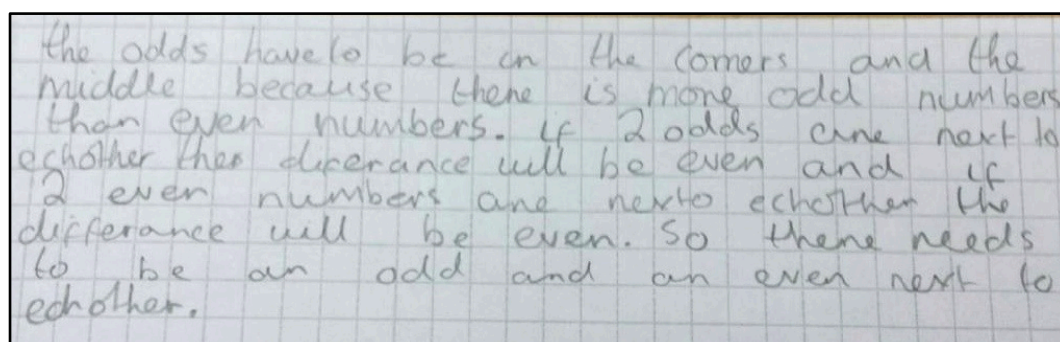 the odds have to be in the corners and the
middle because there is more odd numbers
than even numbers. if 2 odds are next to
echother ther diferance will be even and if
2 even numbers are nexto echother the
differance will be even. So there needs
to be an odd and an even next to
echother.